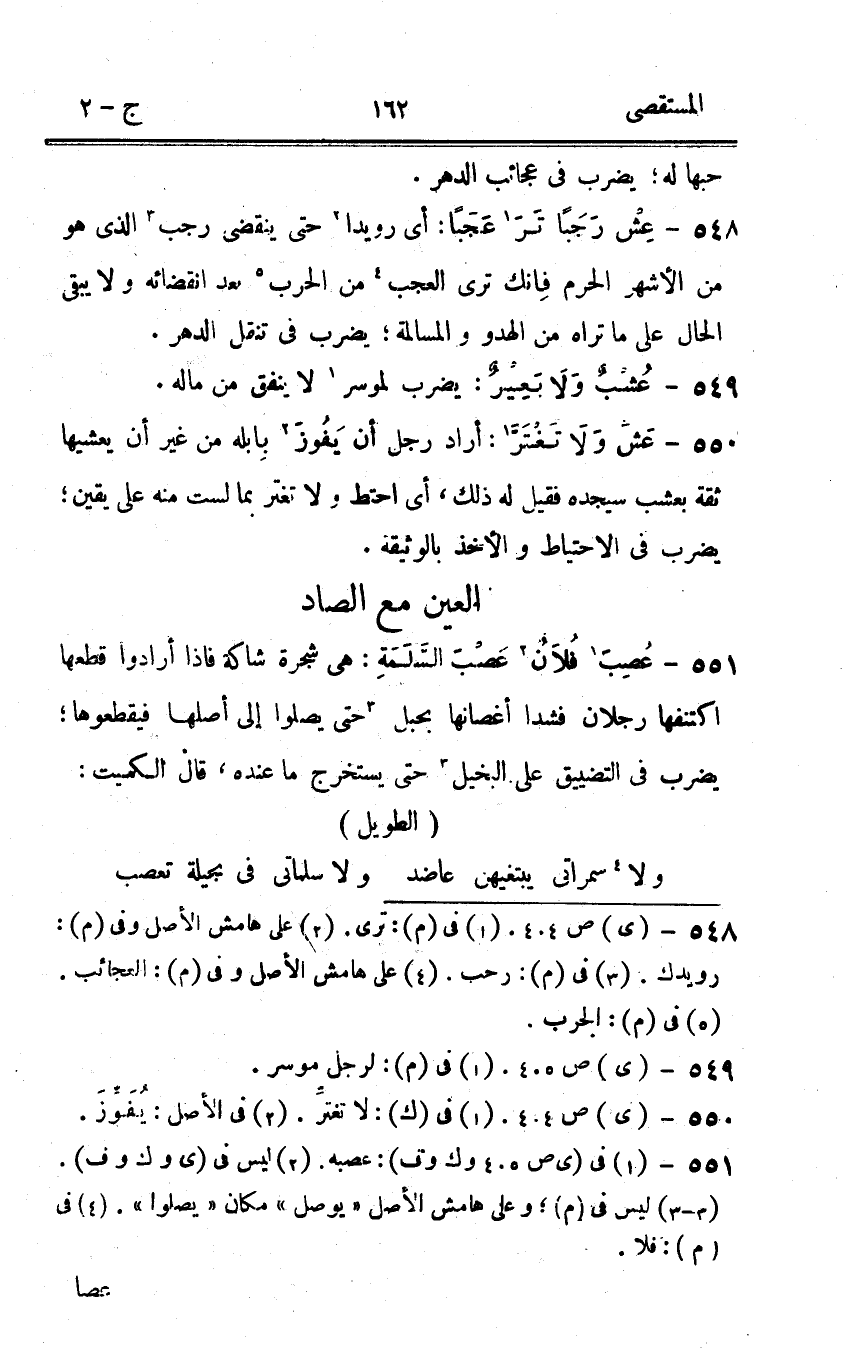 المستقصى ١٦٢ ج - ٢
حبها له؛ يضرب فى عجائب الدهر .
٥٤٨ - عِشْ رَجَبًا تَرَ١ عَجَبًا: أى رويدا٢ حتى ينقضى رجب٣ الذى هو
من الأشهر الحرم فإنك ترى العجب٤ من الحرب٥ بعد انقضائه و لا يبقى
الحال على ما تراه من الهدو و المسالمة؛ يضرب فى تنقل الدهر .
٥٤٩ - عُشْبٌ وَلَا بَعِيْرٌ: يضرب لموسر١ لا ينفق من ماله .
٥٥٠ - عَشِّ وَلَا تَغْتَرَّ١: أراد رجل أن يَفُوزَ٢ بإبله من غير أن يعشيها
ثقة بعشب سيجده فقيل له ذلك، أى احتط و لا تغتر بما لست منه على يقين؛
يضرب فى الاحتياط و الأخذ بالوثيقة .
العين مع الصاد
٥٥١ - عُصِبَ١ فُلَانٌ٢ عَصْبَ السَّلَمَةِ: هى شجرة شاكة فاذا أرادوا قطعها
اكتنفها رجلان فشدا أغصانها بحبل ٣حتى يصلوا إلى أصلها فيقطعوها؛
يضرب فى التضييق على البخيل٣ حتى يستخرج ما عنده، قال الكميت:
( الطويل )
و لا٤ سمراتى يبتغيهن عاضد و لا سلماتى فى بجيلة تعصب
٥٤٨ - (ى) ص ٤٠٤ . (١) فى (م): ترى. (٢) على هامش الأصل وفى (م):
رويدك . (٣) فى (م): رحب . (٤) على هامش الأصل و فى (م): العجائب .
(٥) فى (م): الجرب .
٥٤٩ - (ى) ص ٤٠٥ . (١) فى (م): لرجل موسر .
٥٥٠ - (ى) ص ٤٠٤ . (١) فى (ك): لا تغترَّ . (٢) فى الأصل: يُفَوِّزَ .
٥٥١ - (١) فى (ى ص ٤٠٥ وك وف): عصبه. (٢) ليس فى (ى و ك و ف) .
(٣-٣) ليس فى (م)؛ و على هامش الأصل « يوصل » مكان « يصلوا » . (٤) فى
( م ): فلا .
عصا